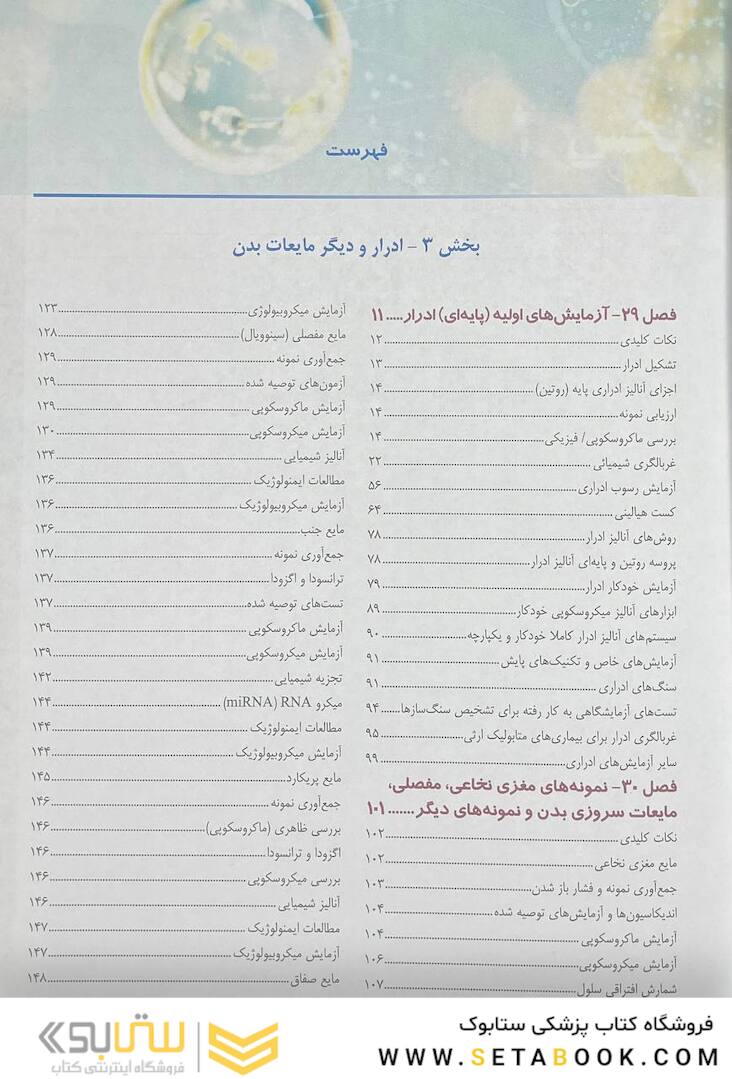 فهرست
بخش ۳ - ادرار و دیگر مایعات بدن
فصل ۲۹- آزمایش‌های اولیه (پایه‌ای) ادرار ..... ۱۱
نکات کلیدی ..... ۱۲
تشکیل ادرار ..... ۱۳
اجزای آنالیز ادراری پایه (روتین) ..... ۱۴
ارزیابی نمونه ..... ۱۴
بررسی ماکروسکوپی/ فیزیکی ..... ۱۴
غربالگری شیمیائی ..... ۲۲
آزمایش رسوب ادراری ..... ۵۶
کست هیالینی ..... ۶۴
روش‌های آنالیز ادرار ..... ۷۸
پروسه روتین و پایه‌ای آنالیز ادرار ..... ۷۸
آزمایش خودکار ادرار ..... ۷۹
ابزارهای آنالیز میکروسکوپی خودکار ..... ۸۹
سیستم‌های آنالیز ادرار کاملا خودکار و یکپارچه ..... ۹۰
آزمایش‌های خاص و تکنیک‌های پایش ..... ۹۱
سنگ‌های ادراری ..... ۹۱
تست‌های آزمایشگاهی به کار رفته برای تشخیص سنگ‌سازها ..... ۹۴
غربالگری ادرار برای بیماری‌های متابولیک ارثی ..... ۹۵
سایر آزمایش‌های ادراری ..... ۹۹
فصل ۳۰- نمونه‌های مغزی نخاعی، مفصلی،
مایعات سروزی بدن و نمونه‌های دیگر ..... ۱۰۱
نکات کلیدی ..... ۱۰۲
مایع مغزی نخاعی ..... ۱۰۲
جمع‌آوری نمونه و فشار باز شدن ..... ۱۰۳
اندیکاسیون‌ها و آزمایش‌های توصیه شده ..... ۱۰۴
آزمایش ماکروسکوپی ..... ۱۰۴
آزمایش میکروسکوپی ..... ۱۰۶
شمارش افتراقی سلول ..... ۱۰۷
آزمایش میکروبیولوژی ..... ۱۲۳
مایع مفصلی (سینوویال) ..... ۱۲۸
جمع‌آوری نمونه ..... ۱۲۹
آزمون‌های توصیه شده ..... ۱۲۹
آزمایش ماکروسکوپی ..... ۱۲۹
آزمایش میکروسکوپی ..... ۱۳۰
آنالیز شیمیایی ..... ۱۳۴
مطالعات ایمنولوژیک ..... ۱۳۶
آزمایش میکروبیولوژیک ..... ۱۳۶
مایع جنب ..... ۱۳۶
جمع‌آوری نمونه ..... ۱۳۷
ترانسودا و اگزودا ..... ۱۳۷
تست‌های توصیه شده ..... ۱۳۷
آزمایش ماکروسکوپی ..... ۱۳۹
آزمایش میکروسکوپی ..... ۱۳۹
تجزیه شیمیایی ..... ۱۴۲
میکرو RNA (miRNA) ..... ۱۴۴
مطالعات ایمنولوژیک ..... ۱۴۴
آزمایش میکروبیولوژیک ..... ۱۴۴
مایع پریکارد ..... ۱۴۵
جمع‌آوری نمونه ..... ۱۴۶
بررسی ظاهری (ماکروسکوپی) ..... ۱۴۶
اگزودا و ترانسودا ..... ۱۴۶
بررسی میکروسکوپی ..... ۱۴۶
آنالیز شیمیایی ..... ۱۴۶
مطالعات ایمنولوژیک ..... ۱۴۷
آزمایش میکروبیولوژیک ..... ۱۴۷
مایع صفاق ..... ۱۴۸
فروشگاه کتاب پزشکی ستابوک
WWW.SETABOOK.COM
ستابوک
فروشگاه اینترنتی کتاب